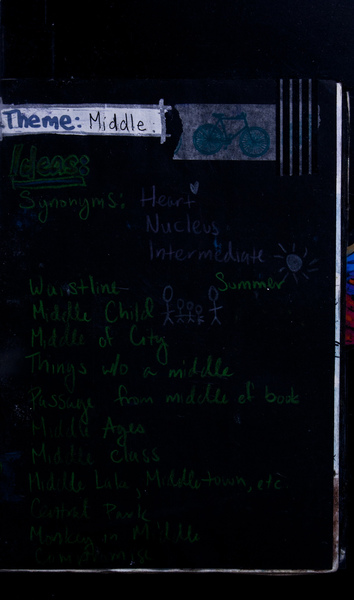 Theme: Middle.
Ideas:
Synonyms: Heart
Nucleus
Intermediate
Waistline Summer
Middle Child
Middle of City
Things w/o a middle
Passage from middle of book
Middle Ages
Middle Class
Middle Lake, Middletown, etc.
Central Park
Monkey in Middle